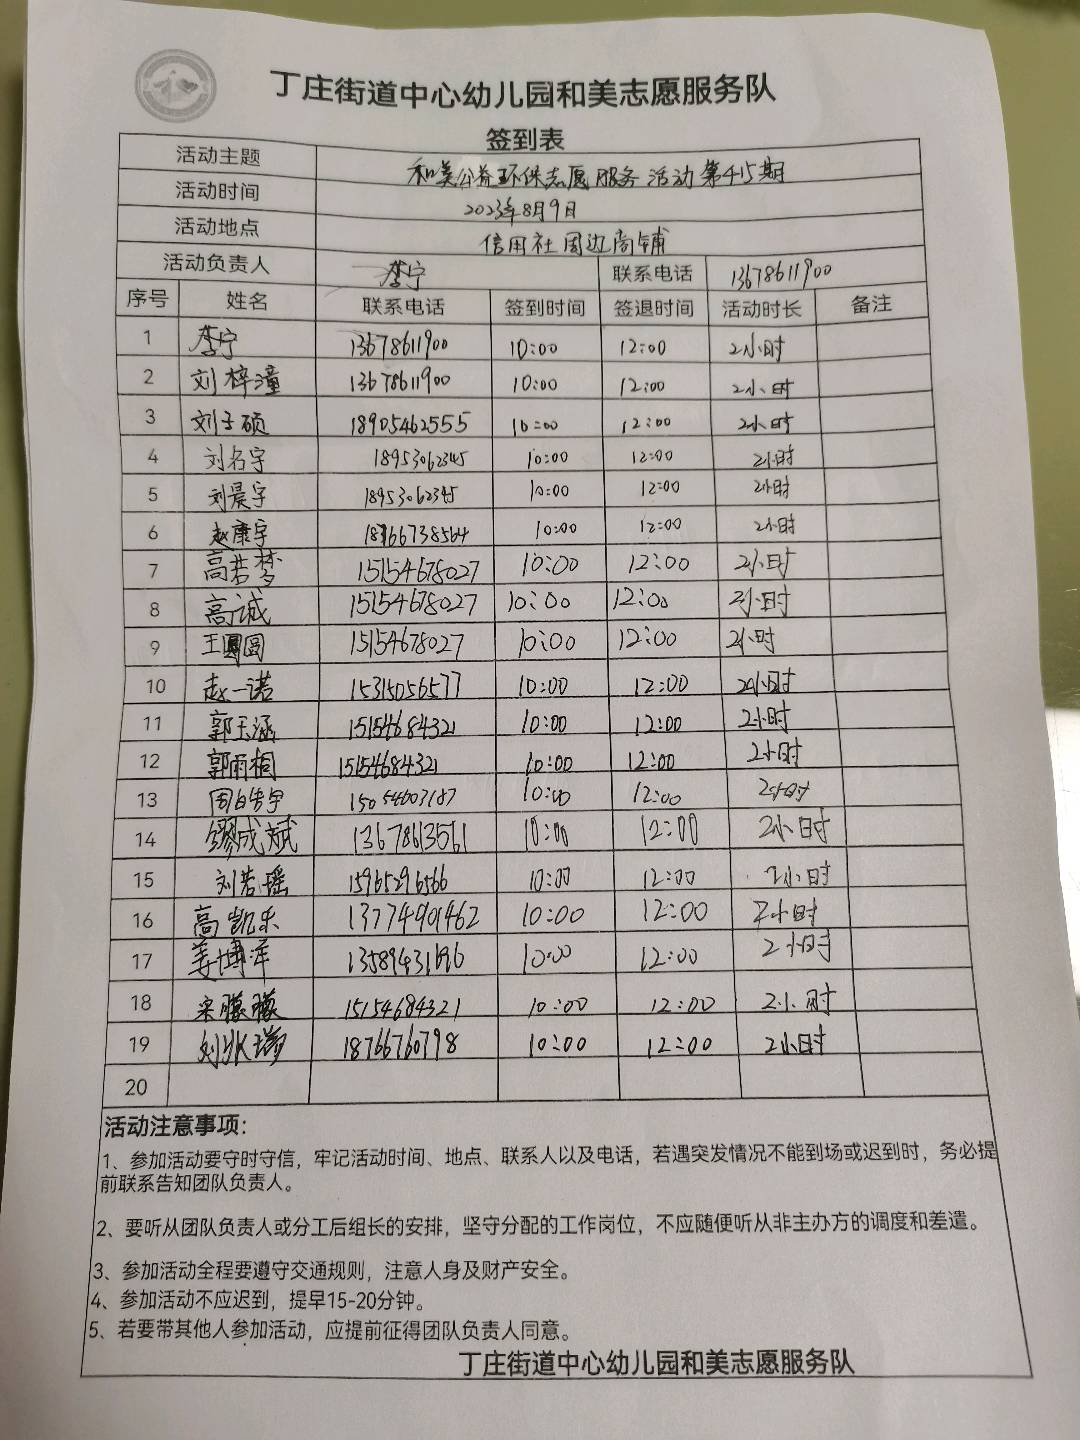 丁庄街道中心幼儿园和美志愿服务队
签到表
活动主题 和美公益环保志愿服务活动第415期
活动时间 2023年8月9日
活动地点 信用社周边商铺
活动负责人 李宁 联系电话 13678611900
序号 姓名 联系电话 签到时间 签退时间 活动时长 备注
1 李宁 13678611900 10:00 12:00 2小时
2 刘梓潼 13678611900 10:00 12:00 2小时
3 刘子硕 18905462555 10:00 12:00 2小时
4 刘名宇 18953062345 10:00 12:00 2小时
5 刘晨宇 18953062345 10:00 12:00 2小时
6 赵康宇 18766738564 10:00 12:00 2小时
7 高若梦 15154678027 10:00 12:00 2小时
8 高诚 15154678027 10:00 12:00 2小时
9 王圆圆 15154678027 10:00 12:00 2小时
10 赵一诺 15315056577 10:00 12:00 2小时
11 郭玉涵 15154684321 10:00 12:00 2小时
12 郭雨桐 15154684321 10:00 12:00 2小时
13 周皓宇 15054603187 10:00 12:00 2小时
14 缪成斌 13678613561 10:00 12:00 2小时
15 刘若瑶 15965296566 10:00 12:00 2小时
16 高凯乐 13774901462 10:00 12:00 2小时
17 姜博洋 13589431696 10:00 12:00 2小时
18 宋朦朦 15154684321 10:00 12:00 2小时
19 18766760798 10:00 12:00 2小时
20
活动注意事项:
1、参加活动要守时守信，牢记活动时间、地点、联系人以及电话，若遇突发情况不能到场或迟到时，务必提
前联系告知团队负责人。
2、要听从团队负责人或分工后组长的安排，坚守分配的工作岗位，不应随便听从非主办方的调度和差遣。
3、参加活动全程要遵守交通规则，注意人身及财产安全。
4、参加活动不应迟到，提早15-20分钟。
5、若要带其他人参加活动，应提前征得团队负责人同意。
丁庄街道中心幼儿园和美志愿服务队